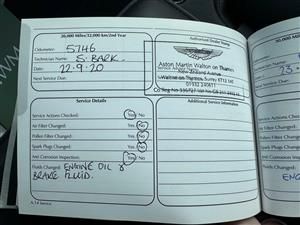 20,000 Miles/32,000 km/2nd Year
Authorised Dealer Stamp
Odometer: 5746
Technician Name: S. BARK.
Date: 22.9.20
Next Service Due:
Aston Martin Walton on Thames
New Zealand Avenue
Walton on Thames, Surrey KT12 1AT
01932 240611
Service Details
Additional Service Information
Service Actions Checked: Yes/No
Air Filter Changed: Yes/No
Pollen Filter Changed: Yes/No
Spark Plugs Changed: Yes/No
Anti Corrosion Inspection: Yes/No
Fluids Changed: ENGINE OIL &
BRAKE FLUID.
30,000
Odometer:
Technician
Date: 23.
Next Service
Service Actions
Air Filter Changed
Pollen Filter
Spark Plugs
Anti Corrosion
Fluids Changed
ENG